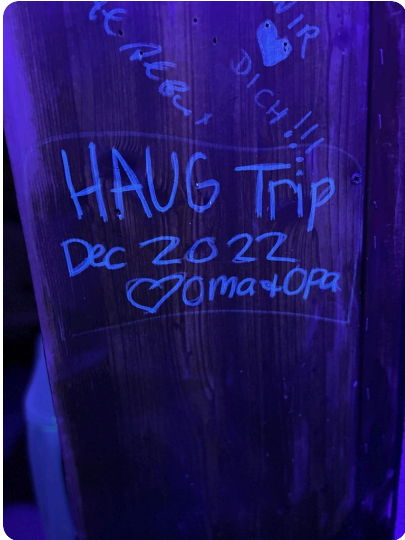 WIR
DICH!!!
HAUG Trip
Dec 2022
♡Oma+Opa